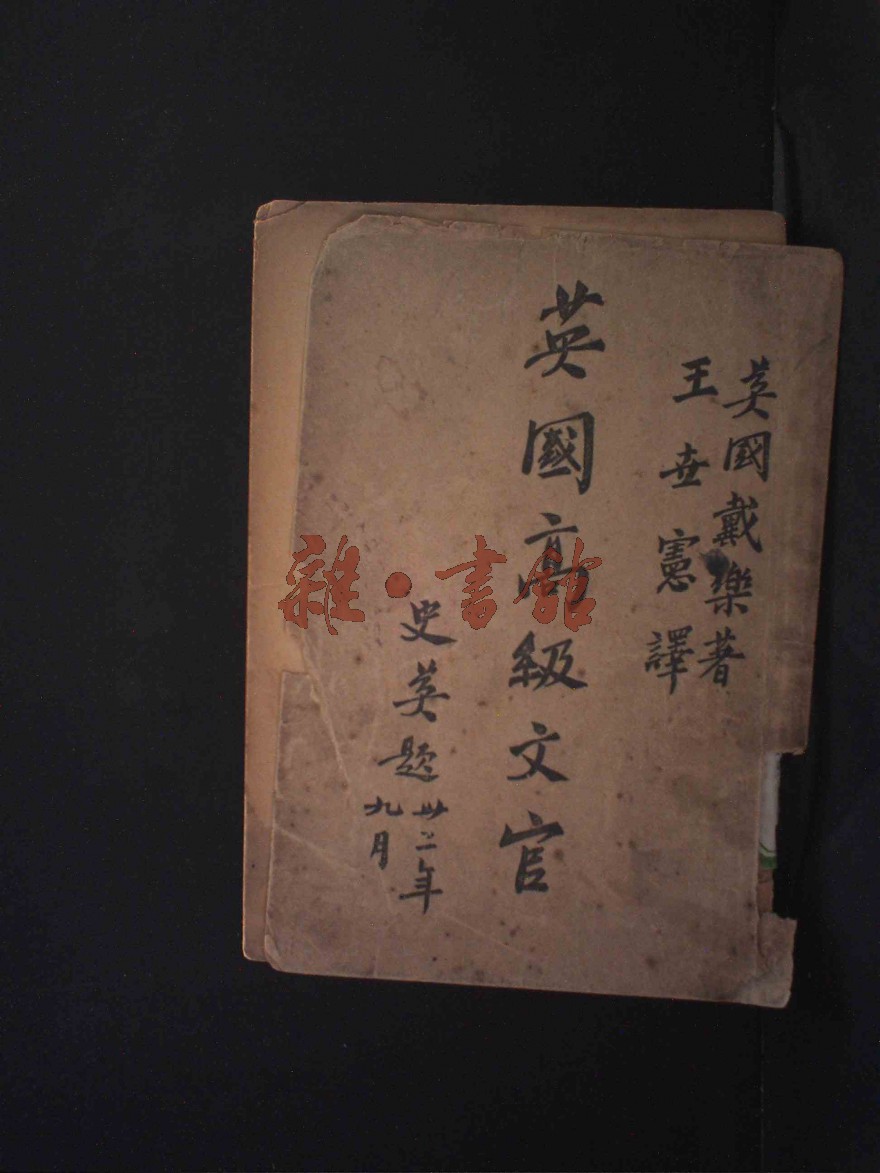 英國戴樂著
王世憲譯
英國高級文官
史英題
卅二年
九月
雜·書館